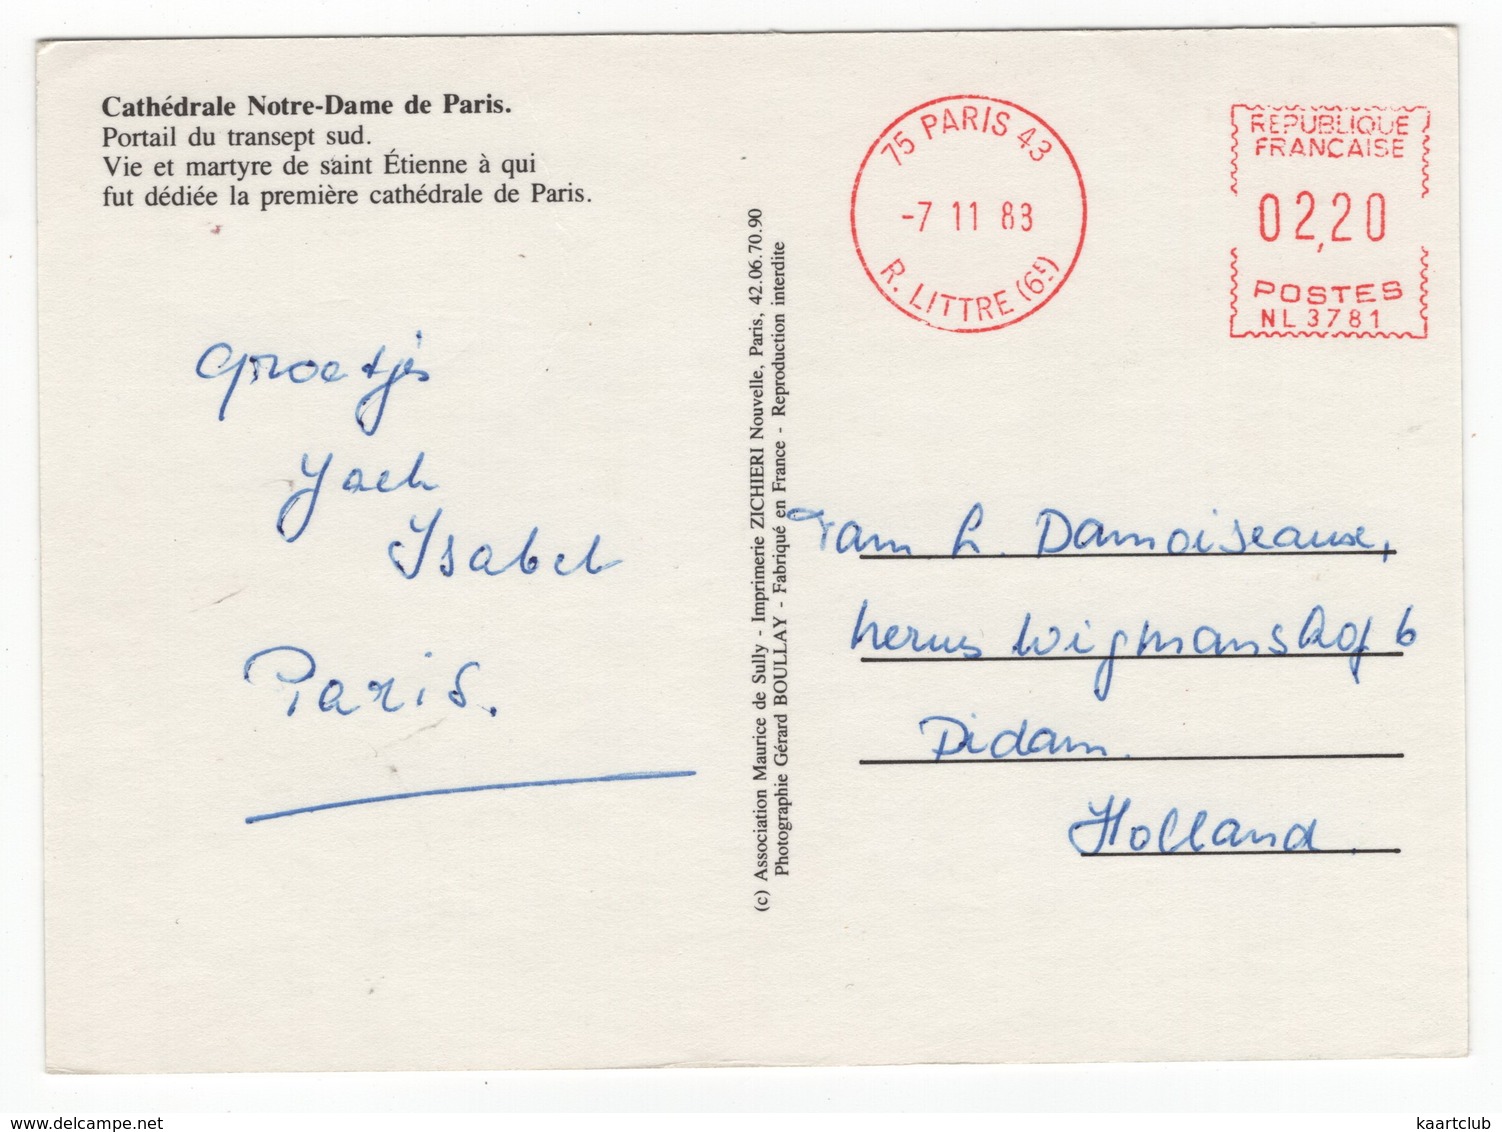 Cathédrale Notre-Dame de Paris.
Portail du transept sud.
Vie et martyre de saint Étienne à qui
fut dédiée la première cathédrale de Paris.
groetjes
Jack
Isabel
Paris.
(c) Association Maurice de Sully - Imprimerie ZICHIERI Nouvelle, Paris, 42.06.70.90
Photographie Gérard BOULLAY - Fabriqué en France - Reproduction interdite
75 PARIS 43
-7 11 83
R. LITTRE (6E)
REPUBLIQUE
FRANCAISE
02,20
POSTES
NL 3781
Fam. L. Damoiseaux,
Wigmanshof 6
Didam.
Holland.
delcampe.net
kaartclub